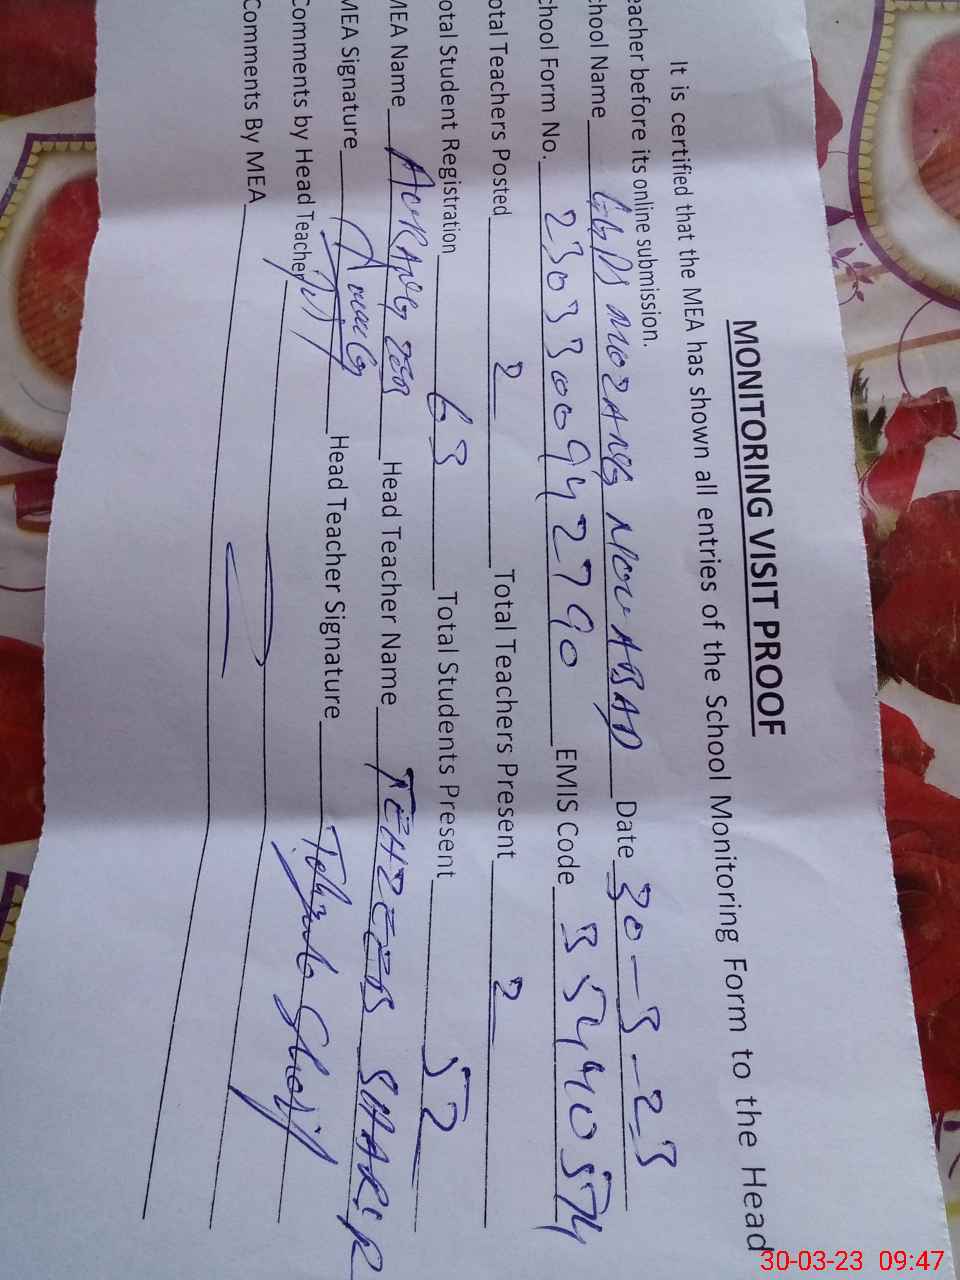 MONITORING VISIT PROOF
It is certified that the MEA has shown all entries of the School Monitoring Form to the Head
eacher before its online submission.
chool Name GGPS MOZANG NOU ABAD Date 30-3-23
chool Form No. 230330094 2790 EMIS Code 35440574
otal Teachers Posted 2 Total Teachers Present 2
otal Student Registration 63 Total Students Present 52
MEA Name AURANGZEB Head Teacher Name TEHZEEB SHARIF
MEA Signature Head Teacher Signature Tehzeeb Sharif
Comments by Head Teacher
Comments By MEA
30-03-23 09:47